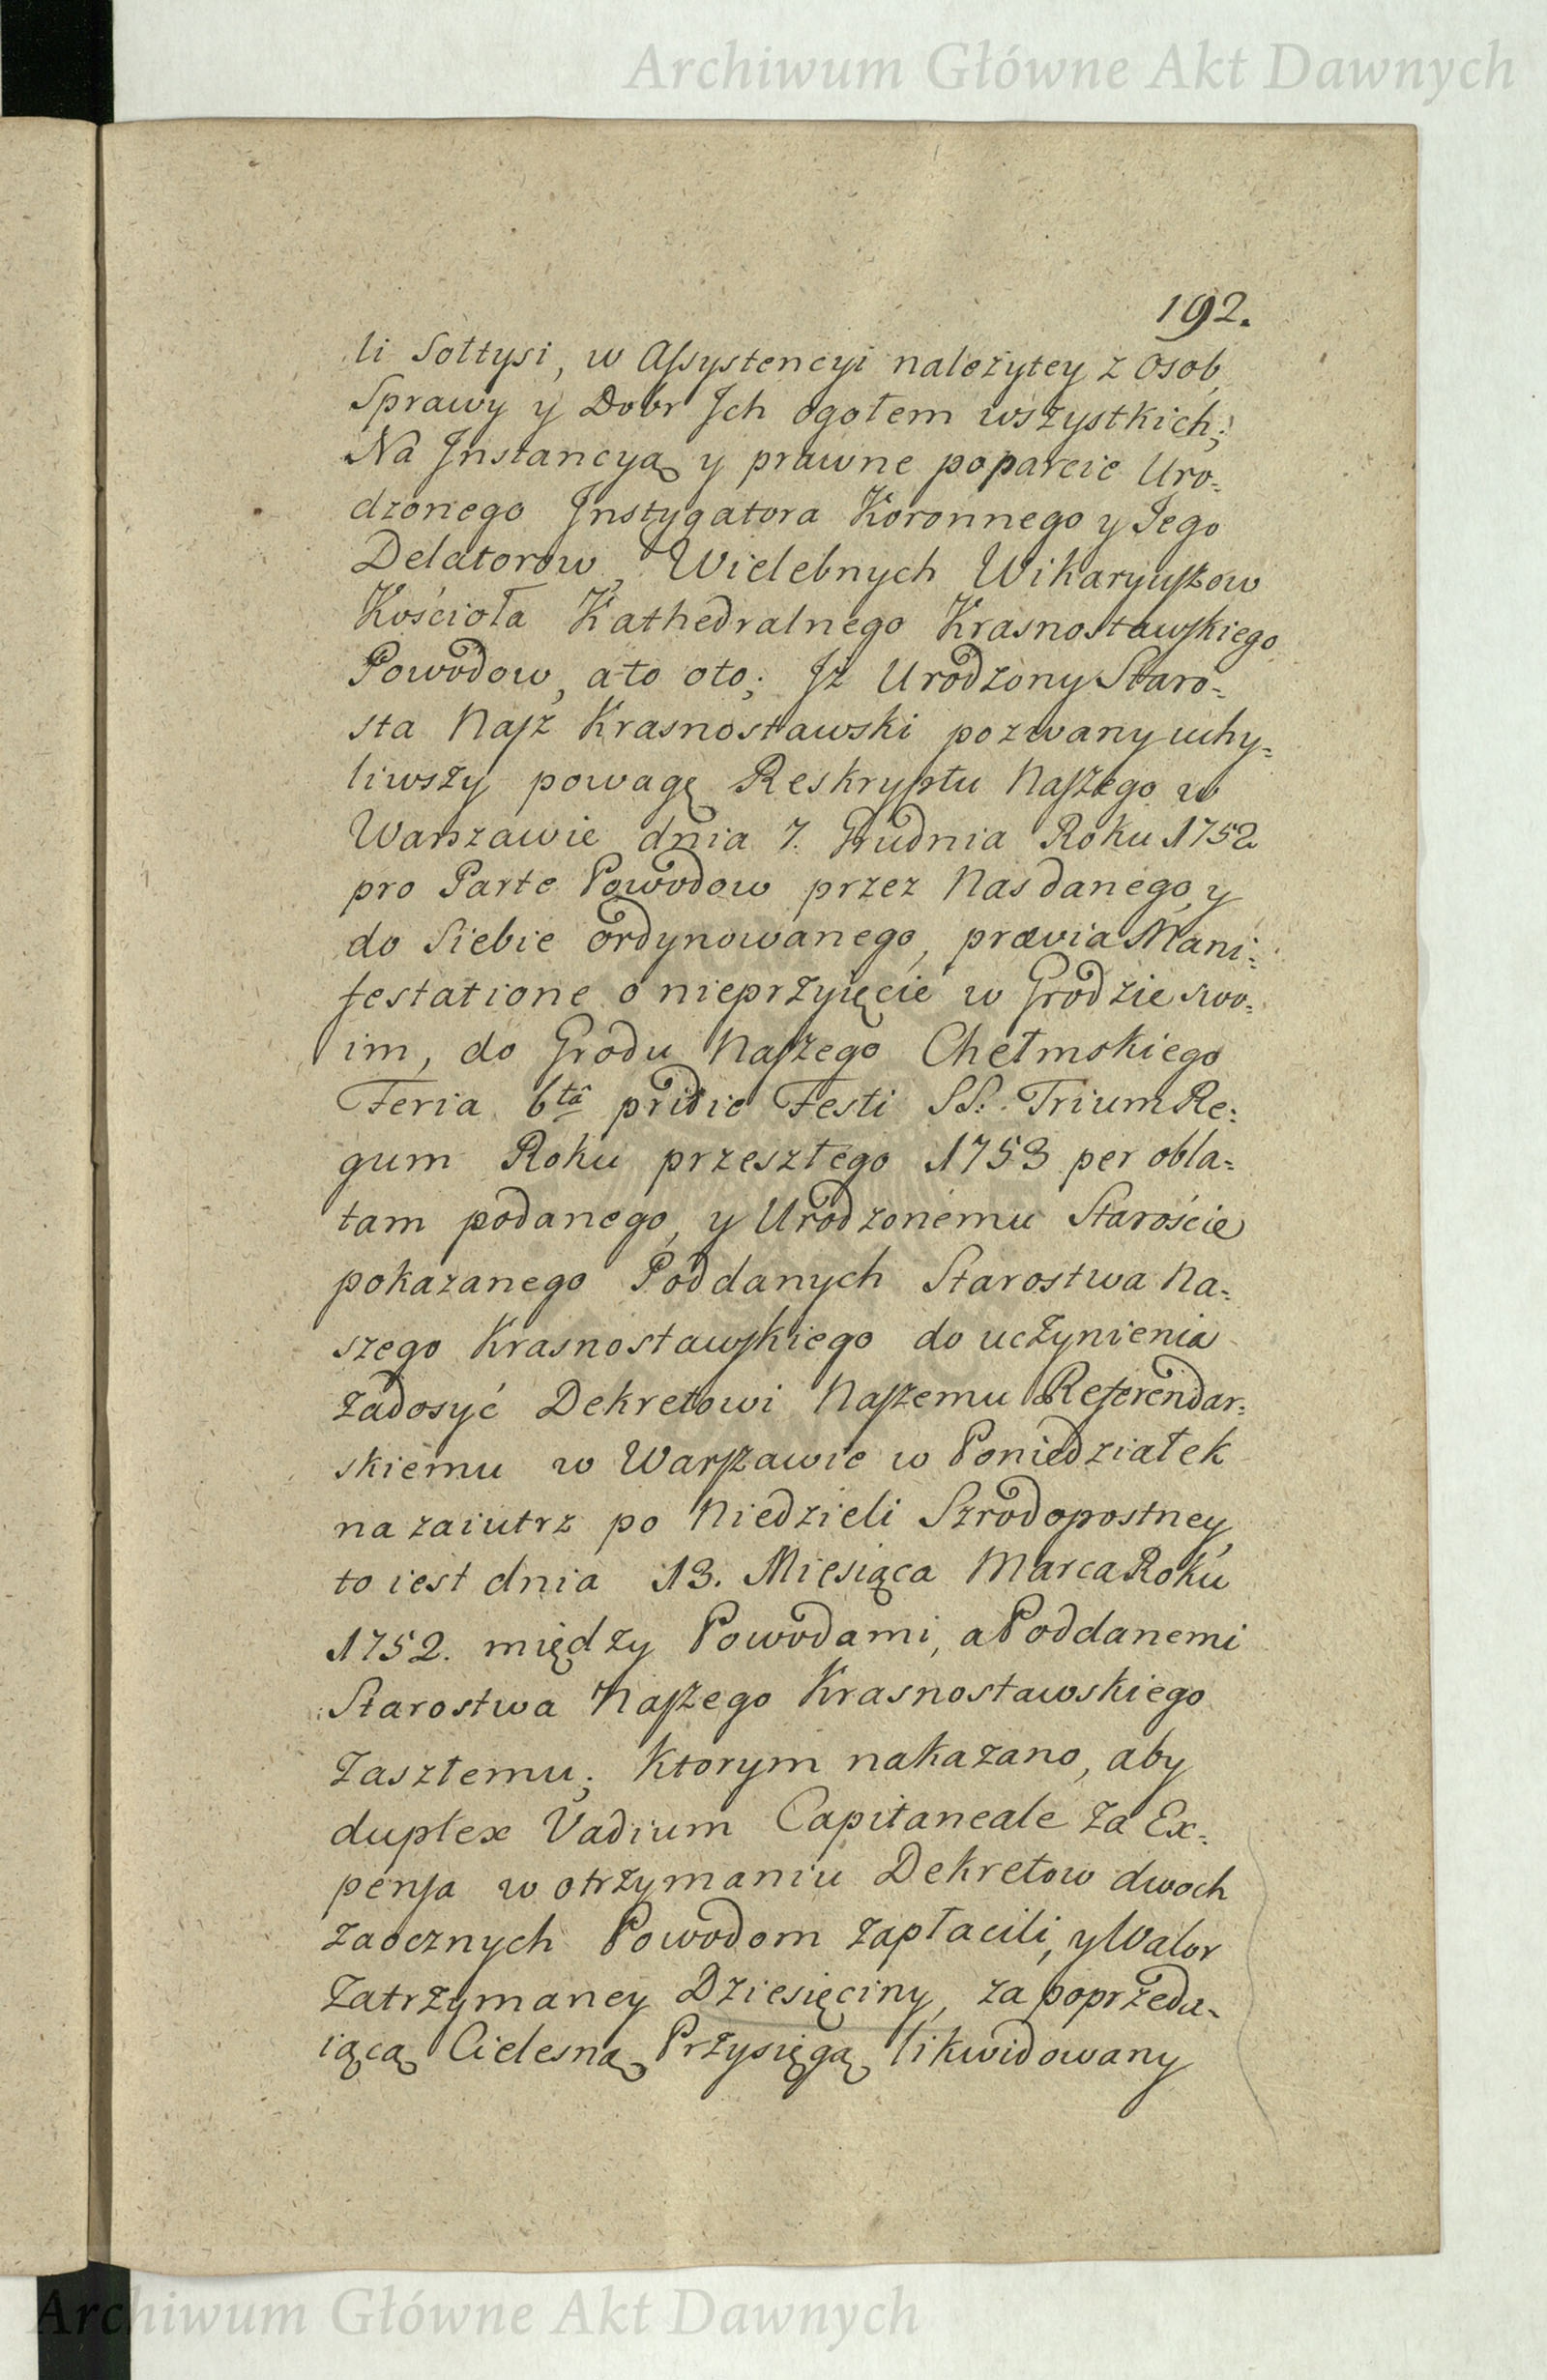 Archiwum Główne Akt Dawnych
192.
li Sołtysi, w Assystencyi należytey z Osob,
Sprawy y Dobr Jch ogołem wszystkich;
Na Jnstancyą y prawne poparcie Uro=
dzonego Jnstygatora Koronnego y Jego
Delatorow, Wielebnych Wikaryuszow
Kościoła Kathedralnego Krasnostawskiego
Powodow, a to oto; Jż Urodzony Staro=
sta Nasz Krasnostawski pozwany uchy=
liwszy powagę Reskryptu Naszego w
Warszawie dnia 7. Grudnia Roku 1752
pro Parte Powodow przez Nas danego, y
do Siebie ordynowanego, prævia Mani=
festatione o nieprzyięcie w Grodzie swo=
im, do Grodu Naszego Chełmskiego
Feria 6tâ pridie Festi SS: Trium Re=
gum Roku przeszłego 1753 per obla=
tam podanego, y Urodzonemu Staroście
pokazanego Poddanych Starostwa Na=
szego Krasnostawskiego do uczynienia
zadosyć Dekretowi Naszemu Referendar=
skiemu w Warszawie w Poniedziałek
na zaiutrz po Niedzieli Szrodopostney,
to iest dnia 13. Miesiąca Marca Roku
1752. między Powodami, a Poddanemi
Starostwa Naszego Krasnostawskiego
Zaszłemu; Ktorym nakazano, aby
duplex Vadium Capitaneale za Ex=
pensa w otrzymaniu Dekretow dwoch
Zaocznych Powodom zapłacili, y Walor
Zatrzymaney Dziesięciny, za poprzeda=
iącą Cielesną Przysięgą likwidowany
Archiwum Główne Akt Dawnych